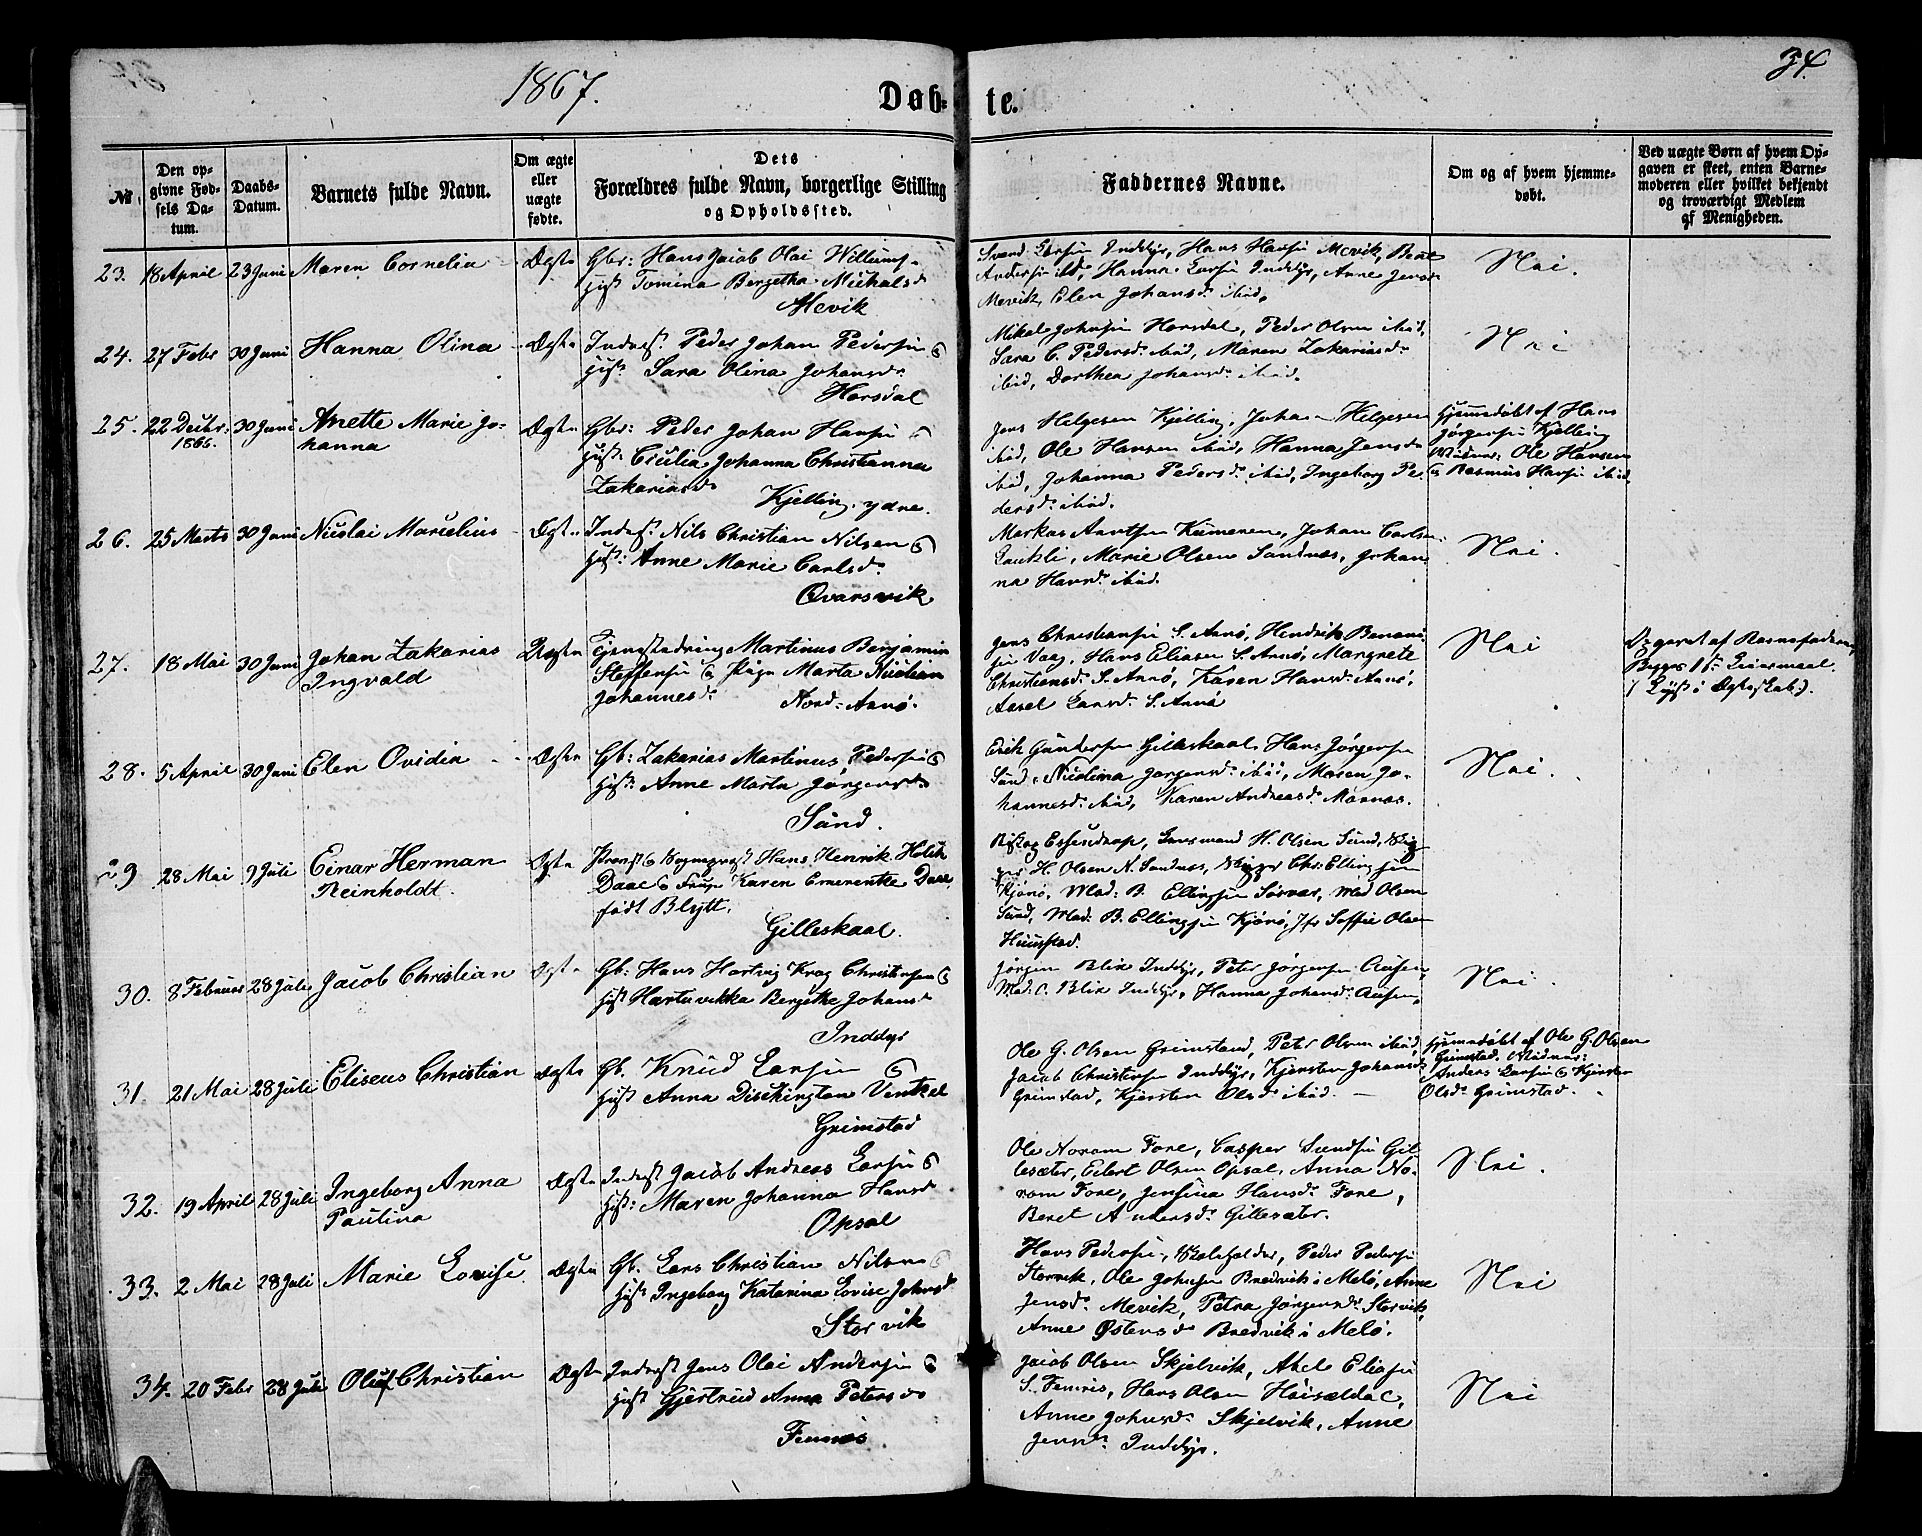 1867.
Døb-te.
34.
№
Den opgivne Fødsels Datum.
Daabs-Datum.
Barnets fulde Navn.
Om ægte eller uægte fødte.
Dets Forældres fulde Navn, borgerlige Stilling og Opholdssted.
Faddernes Navne.
Om og af hvem hjemmedøbt.
Ved uægte Børn af hvem Opgaven er skeet, enten Barnemoderen eller hvilket bekjendt og troværdigt Medlem af Menigheden.
23. 18 April 23 Juni Maren Cornelia Ægte Gbr: Hans Jacob Olai Willums.
Hust Tomina Bergetha Michalsd
Mevik
Svend Larsen Inddyr, Hans Hansen Mevik, Beret
Andersen ibid, Hanna Larsen Inddyr, Anne Jensd
Mevik, Elen Johansd. ibid.
Nei.
24. 27 Febr 30 Juni Hanna Olina Ægte Inderst. Peder Johan Pedersen &
Hust. Sara Olina Johansd.
Horsdal
Mikal Johnsen Horsdal, Peder Olsen ibid,
Sara C. Pedersd. ibid, Maren Zakariasd.
ibid, Dorthea Johansd. ibid.
Nei
25. 22 Decbr: 1866. 30 Juni Anette Marie Jo-
hanna
Ægte Gbr: Peder Johan Hansen &
Hust: Cecilia Johanna Christianna
Zakariasd
Kjelling ydre.
Jens Helgesen Kjelling, Johan Helgesen
ibid, Ole Hansen ibid, Hanna Jensd
ibid, Johanna Pedersd. ibid, Ingeborg Pe-
dersd. ibid.
Hjemmedøbt af Hans
Jørgensen Kjelling
Vidner: Ole Hansen
& Rasmus Hansen ibid
26. 25 Marts 30 Juni Nicolai Marselius Ægte Inderst Nils Christian Nilsen &
Hust: Anne Marie Carlsd.
Qvarsvik
Markus Arntsen, Johan Carlsen
Marie Olsen Sandnæs, Johan-
na Hansd. ibid.
Nei.
27. 18 Mai 30 Juni Johan Zakarias
Ingvald
Ægte Tjenestedreng Martinus Benjamin
Steffensen & Pige Marta Nicolian
Johannesd.
Nord-Arnø.
Jens Christiansen S. Arnø, Hendrik Benoni-
sen Vaag, Hans Eliasen S. Arnø, Margrete
Christiansd. S. Arnø, Karen Hansd. Arnø,
Larsd. S. Arnø
Nei
Opgivet af Barnefaderen,
Begges 1ste Leiermaal.
(Lyst i Ægteskab).
28. 5 April 30 Juni Elen Ovidia Ægte Gb: Zakarias Martinus Pedersen &
Hust: Anne Marta Jørgensd.
Sund.
Erik Gundersen Gilleskaal, Hans Jørgensen
Sund, Nicolina Jørgensd. ibid, Maren Jo-
hannesd. ibid, Karen Andreasd. Mornæs.
Nei.
29 28 Mai 9 Juli Einar Herman
Reinholdt.
Ægte Provst & Sognepræst Hans Henrik Holck
Daae & Frue Karen Emerentse Daae
født Blytt.
Gilleskaal.
Biskop Essendrop, Lensmand H. Olsen Sund,
H. Olsen N. Sandnæs, Chr: Ellingsen
Kjønø, Mad: B. Ellingsen Sørvær, Mad Olsen
Sund, Mad: B. Ellingsen Kjønø, Jfr Soffie Olsen
Hunstad.
30. 8 Februar 28 Juli Jacob Christian Ægte Gb: Hans Hartvig Krog Christensen &
Hust Hartuvikka Bergitte Johansd
Inddyr
Jørgen Blix Inddyr, Peter Jørgensen
Mad: C. Blix Inddyr, Hanna Johansd:
Nei.
31. 21 Mai 28 Juli Eliseus Christian Ægte Gb. Knud Larsen &
Hust Anna Dischington Ventzel
Grimstad
Ole G. Olsen Grimstad, Peter Olsen ibid,
Jacob Christensen Inddyr, Kjersten Johansd
Grimstad, Kjersten Olsd ibid.
Hjemmedøbt af Ole G. Olsen
Grimstad. Vidner:
Anders Larsen & Kjersten
Olsd. Grimstad.
32. 19 April 28 Juli Ingeborg Anna
Paulina
Ægte Inderst Jacob Andreas Larsen &
Hust: Maren Johanna Hansd
Opsal
Ole Norum Fore, Casper Svendsen Gil-
lesæter, Edert Olsen Opsal, Anna No-
rum Fore, Jensina Hansd. Fore,
Beret Andersd. Gillesæter.
Nei.
33. 2 Mai 28 Juli Marie Lovise Ægte Gb. Lars Christian Nilsen &
Hust Ingeborg Katarina Lovise Johnsd
Storvik
Hans Pedersen, Peder Pedersen
Storvik, Ole Johnsen Bredvik i Melø, Anne
Jensd. Mevik, Petra Jørgensd. Storvik,
Anne Østensd Bredvik i Melø.
Nei
34. 20 Febr 28 Juli Oluf Christian Ægte Inderst Jens Olai Andersen &
Hust Gjertrud Anna Petersd.
Femris
Jacob Olsen Skjelvik, Abel Eliasen
S. Femris, Hans Olsen
Anne Johnsd. Skjelvik, Anne
Jensd. Inddyr.
Nei